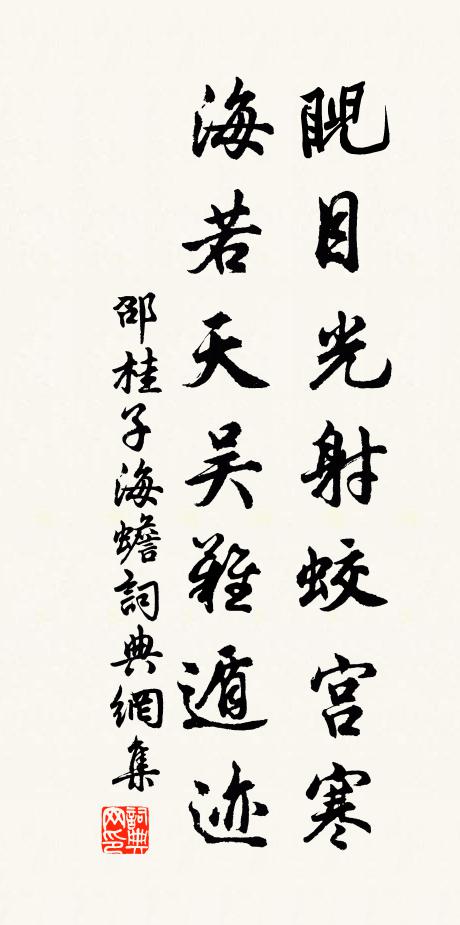 睨目光射蛟宫寒
海若天吴難遁迹
邵桂子海蟾詞典網集
詞典
网印